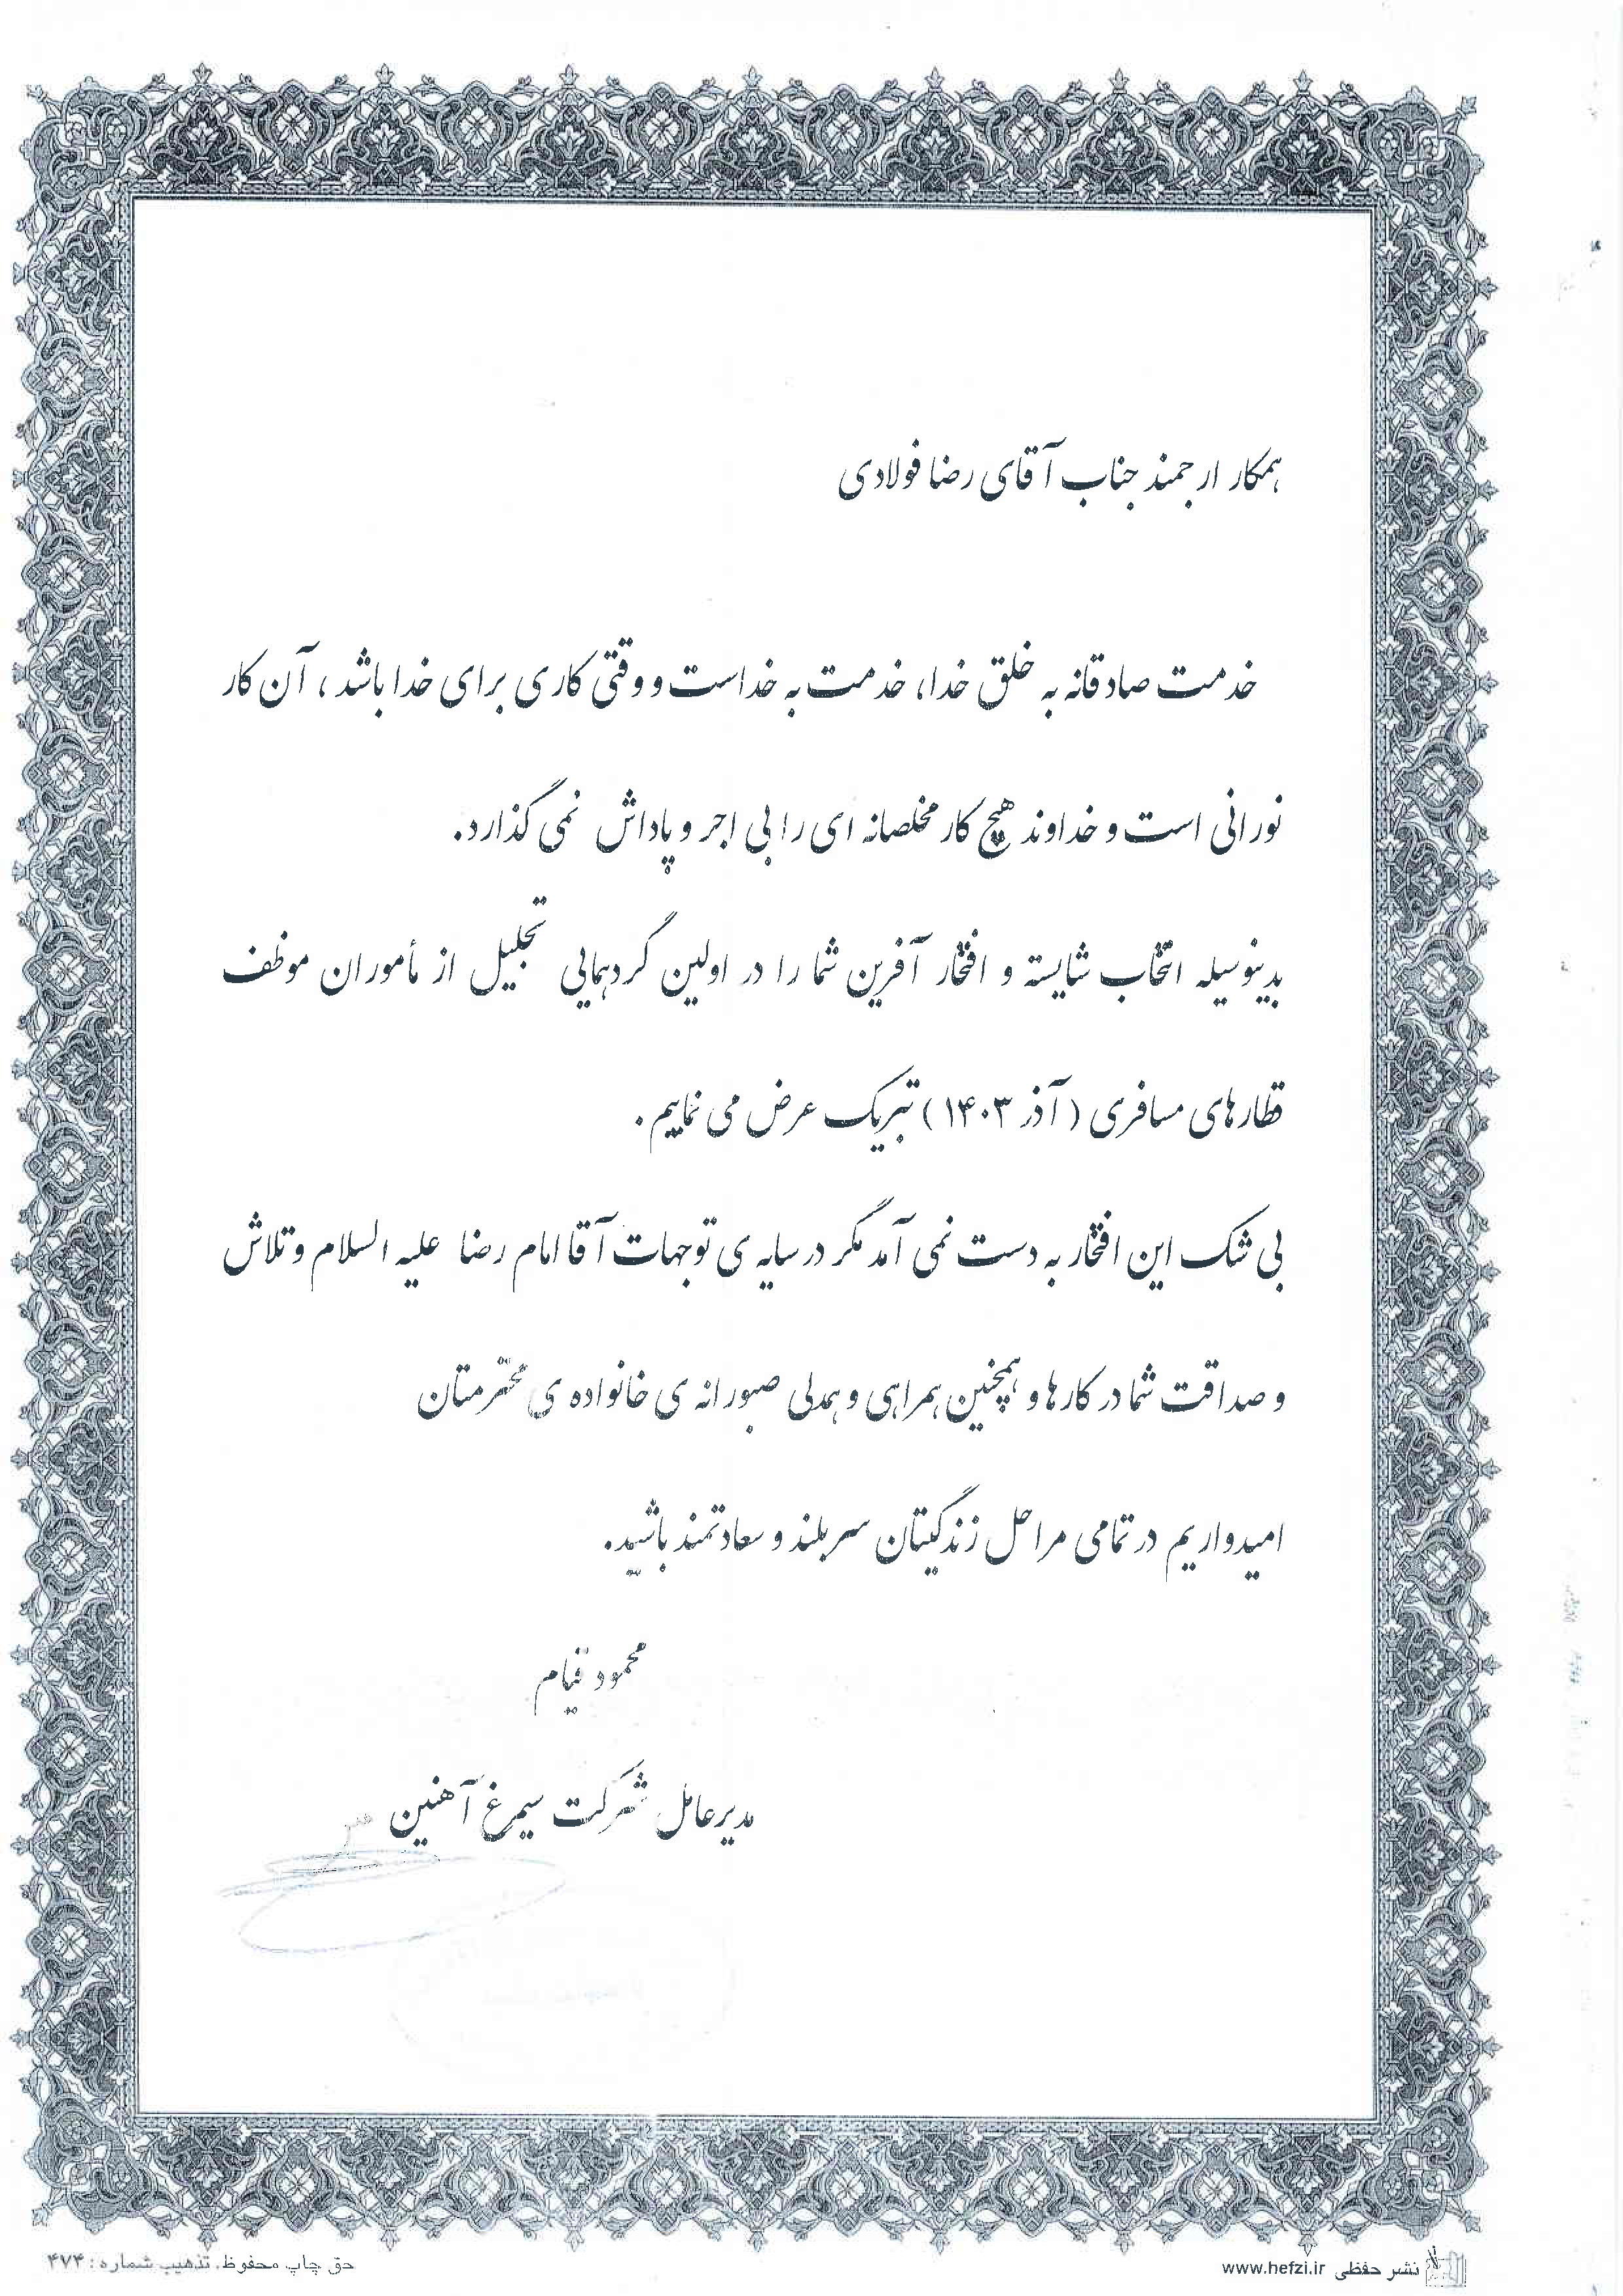 همکار ارجمند جناب آقای رضا فولادی
خدمت صادقانه به خلق خدا، خدمت به خداست و وقتی کاری برای خدا باشد، آن کار
نورانی است و خداوند هیچ کار مخلصانه ای را بی اجر و پاداش نمی گذارد.
بدینوسیله انتخاب شایسته و افتخار آفرین شما را در اولین گردهمایی تجلیل از مأموران موظف
قطارهای مسافری (آذر ۱۴۰۳) تبریک عرض می نماییم.
بی شک این افتخار به دست نمی آمد مگر در سایه ی توجهات آقا امام رضا علیه السلام و تلاش
و صداقت شما در کارها و همچنین همراهی و همدلی صبورانه ی خانواده ی محترمتان
امیدواریم در تمامی مراحل زندگیتان سربلند و سعادتمند باشید.
محمود قیام
مدیرعامل شرکت سیمرغ آهنین
نشر حفظی www.hefzi.ir
حق چاپ محفوظ. تذهیب شماره: ۴۷۴